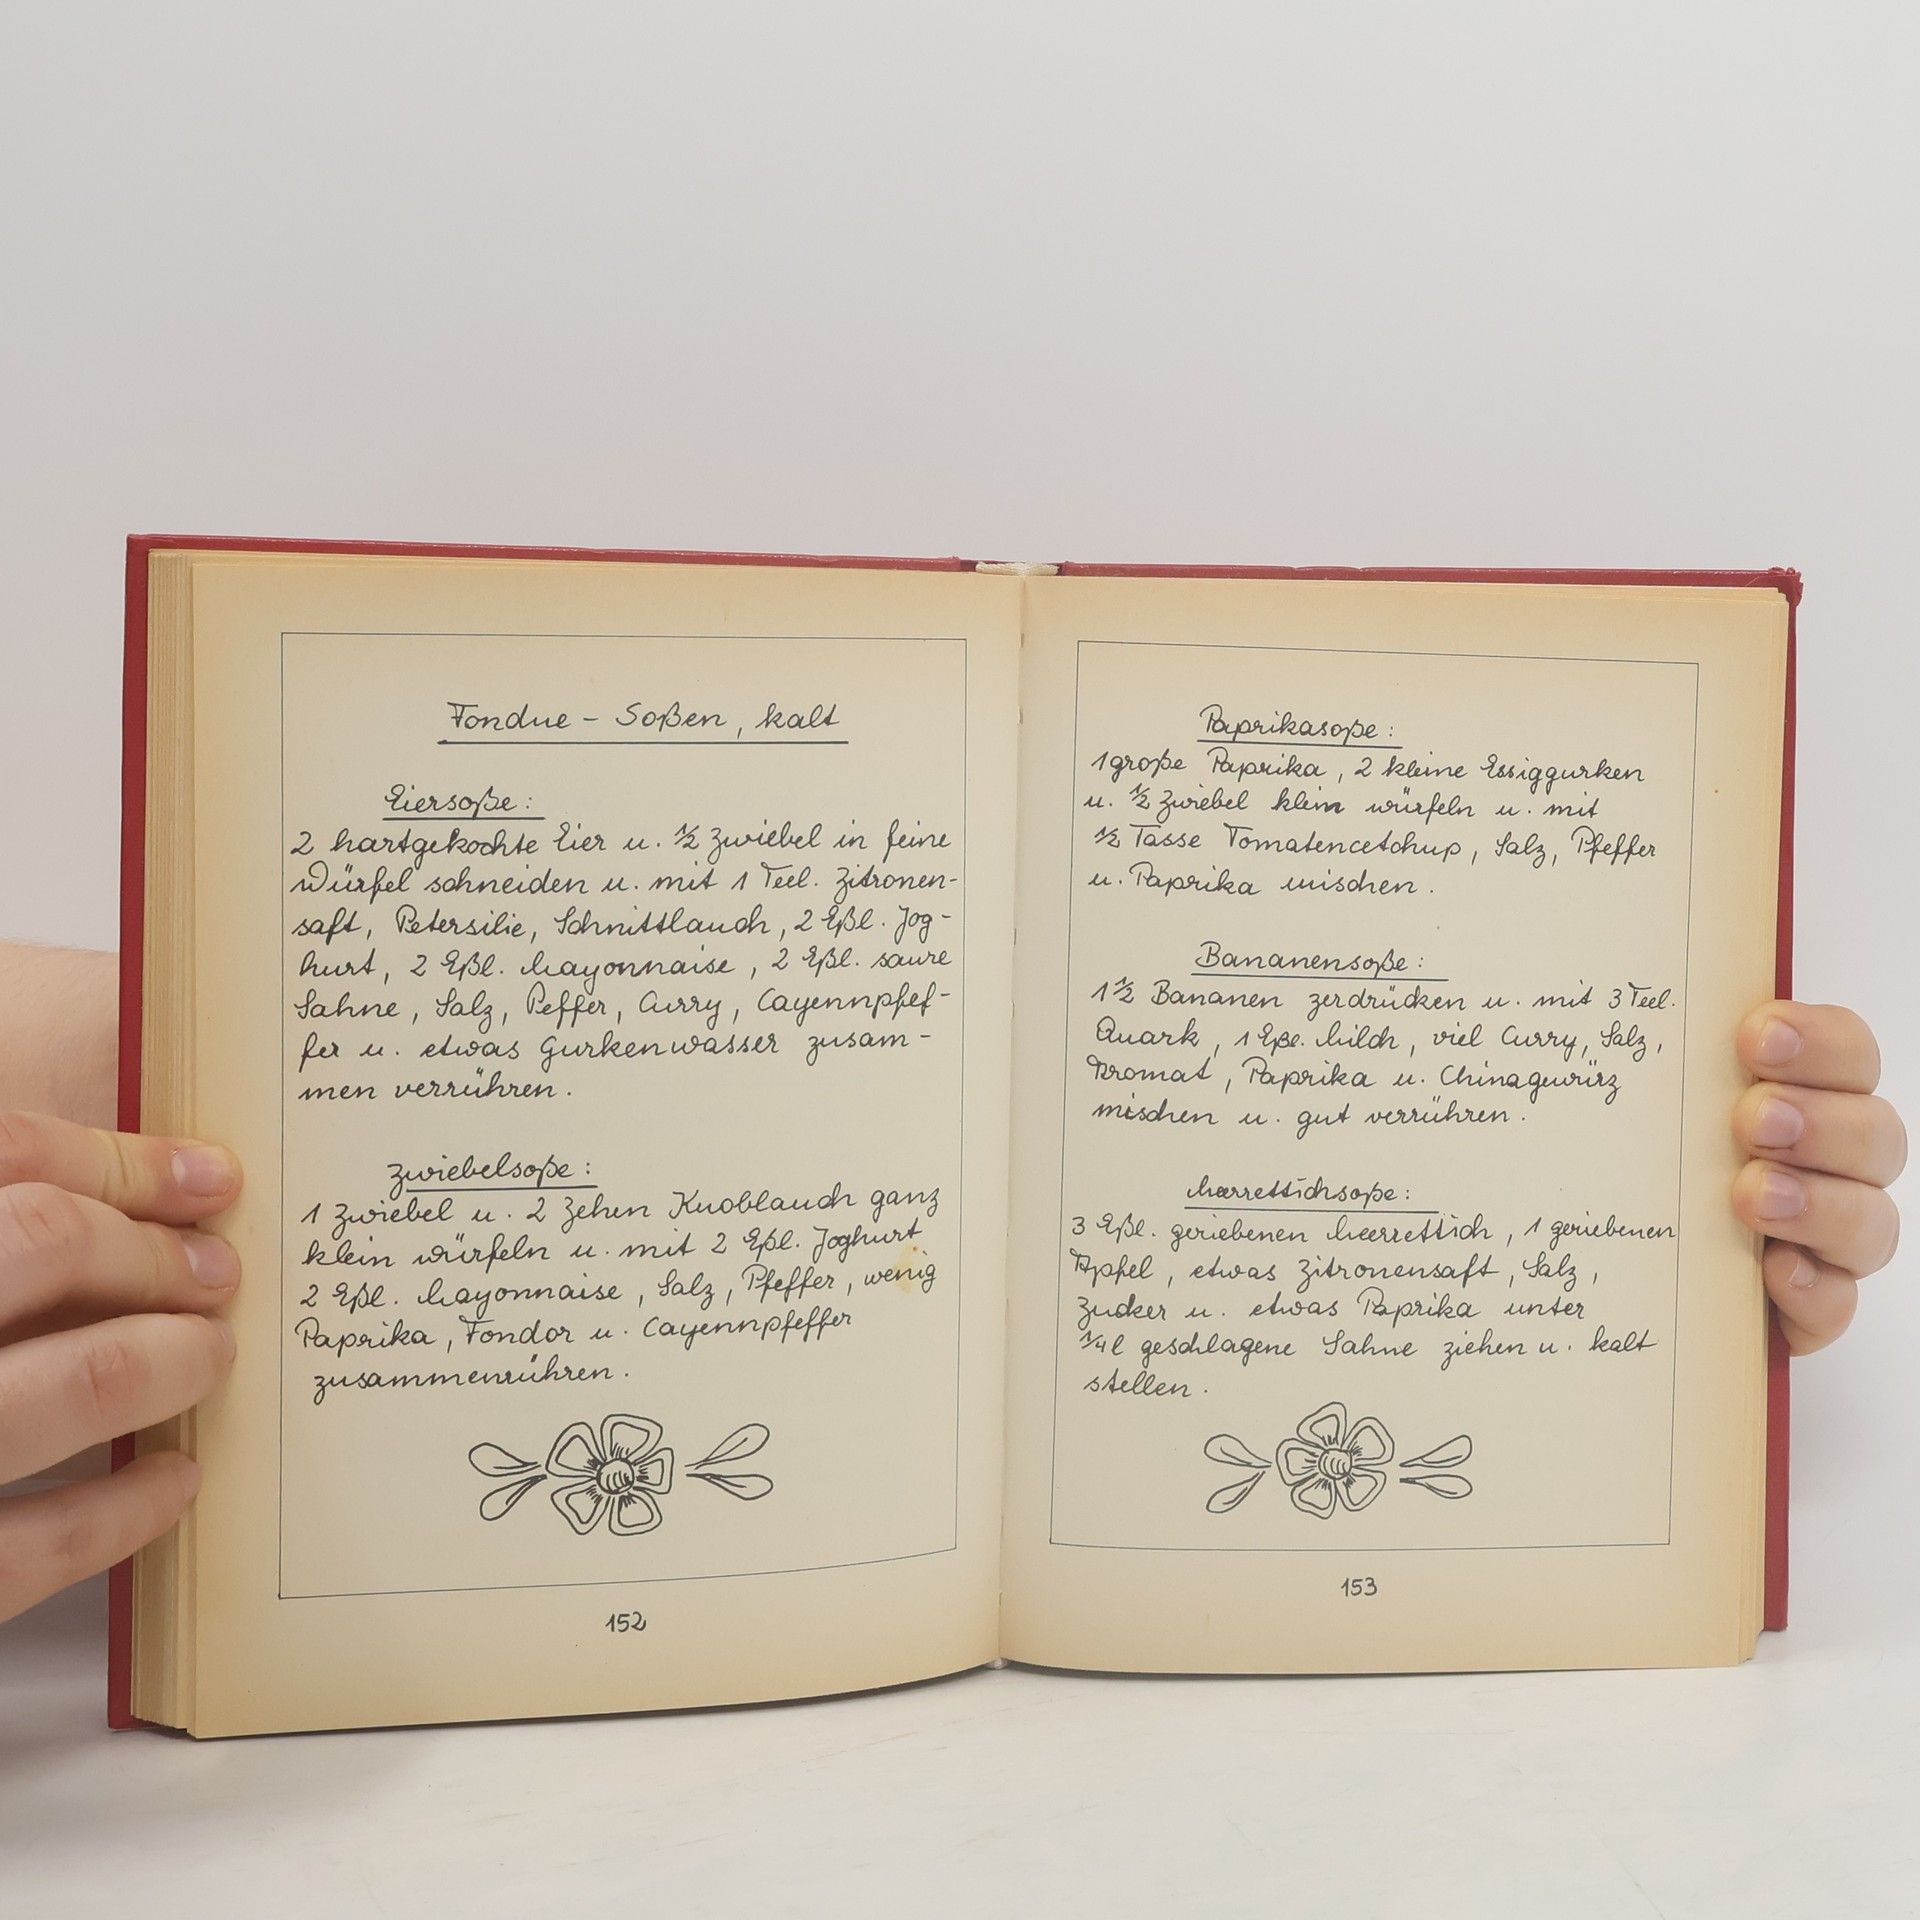 Fondue - Soßen, kalt
Eiersoße:
2 hartgekochte Eier u. 1/2 Zwiebel in feine
Würfel schneiden u. mit 1 Teel. Zitronen-
saft, Petersilie, Schnittlauch, 2 Eßl. Jog-
hurt, 2 Eßl. Mayonnaise, 2 Eßl. saure
Sahne, Salz, Peffer, Curry, Cayennpfef-
fer u. etwas Gurkenwasser zusam-
men verrühren.
Zwiebelsoße:
1 Zwiebel u. 2 Zehen Knoblauch ganz
klein würfeln u. mit 2 Eßl. Joghurt
2 Eßl. Mayonnaise, Salz, Pfeffer, wenig
Paprika, Fondor u. Cayennpfeffer
zusammenrühren.
152
Paprikasoße:
1 große Paprika, 2 kleine Essiggurken
u. 1/2 Zwiebel klein würfeln u. mit
1/2 Tasse Tomatencetchup, Salz, Pfeffer
u. Paprika mischen.
Bananensoße:
1 1/2 Bananen zerdrücken u. mit 3 Teel.
Quark, 1 Eßl. Milch, viel Curry, Salz,
Aromat, Paprika u. Chinagewürz
mischen u. gut verrühren.
Meerrettichsoße:
3 Eßl. geriebenen Meerrettich, 1 geriebenen
Apfel, etwas Zitronensaft, Salz,
Zucker u. etwas Paprika unter
1/4 l geschlagene Sahne ziehen u. kalt
stellen.
153